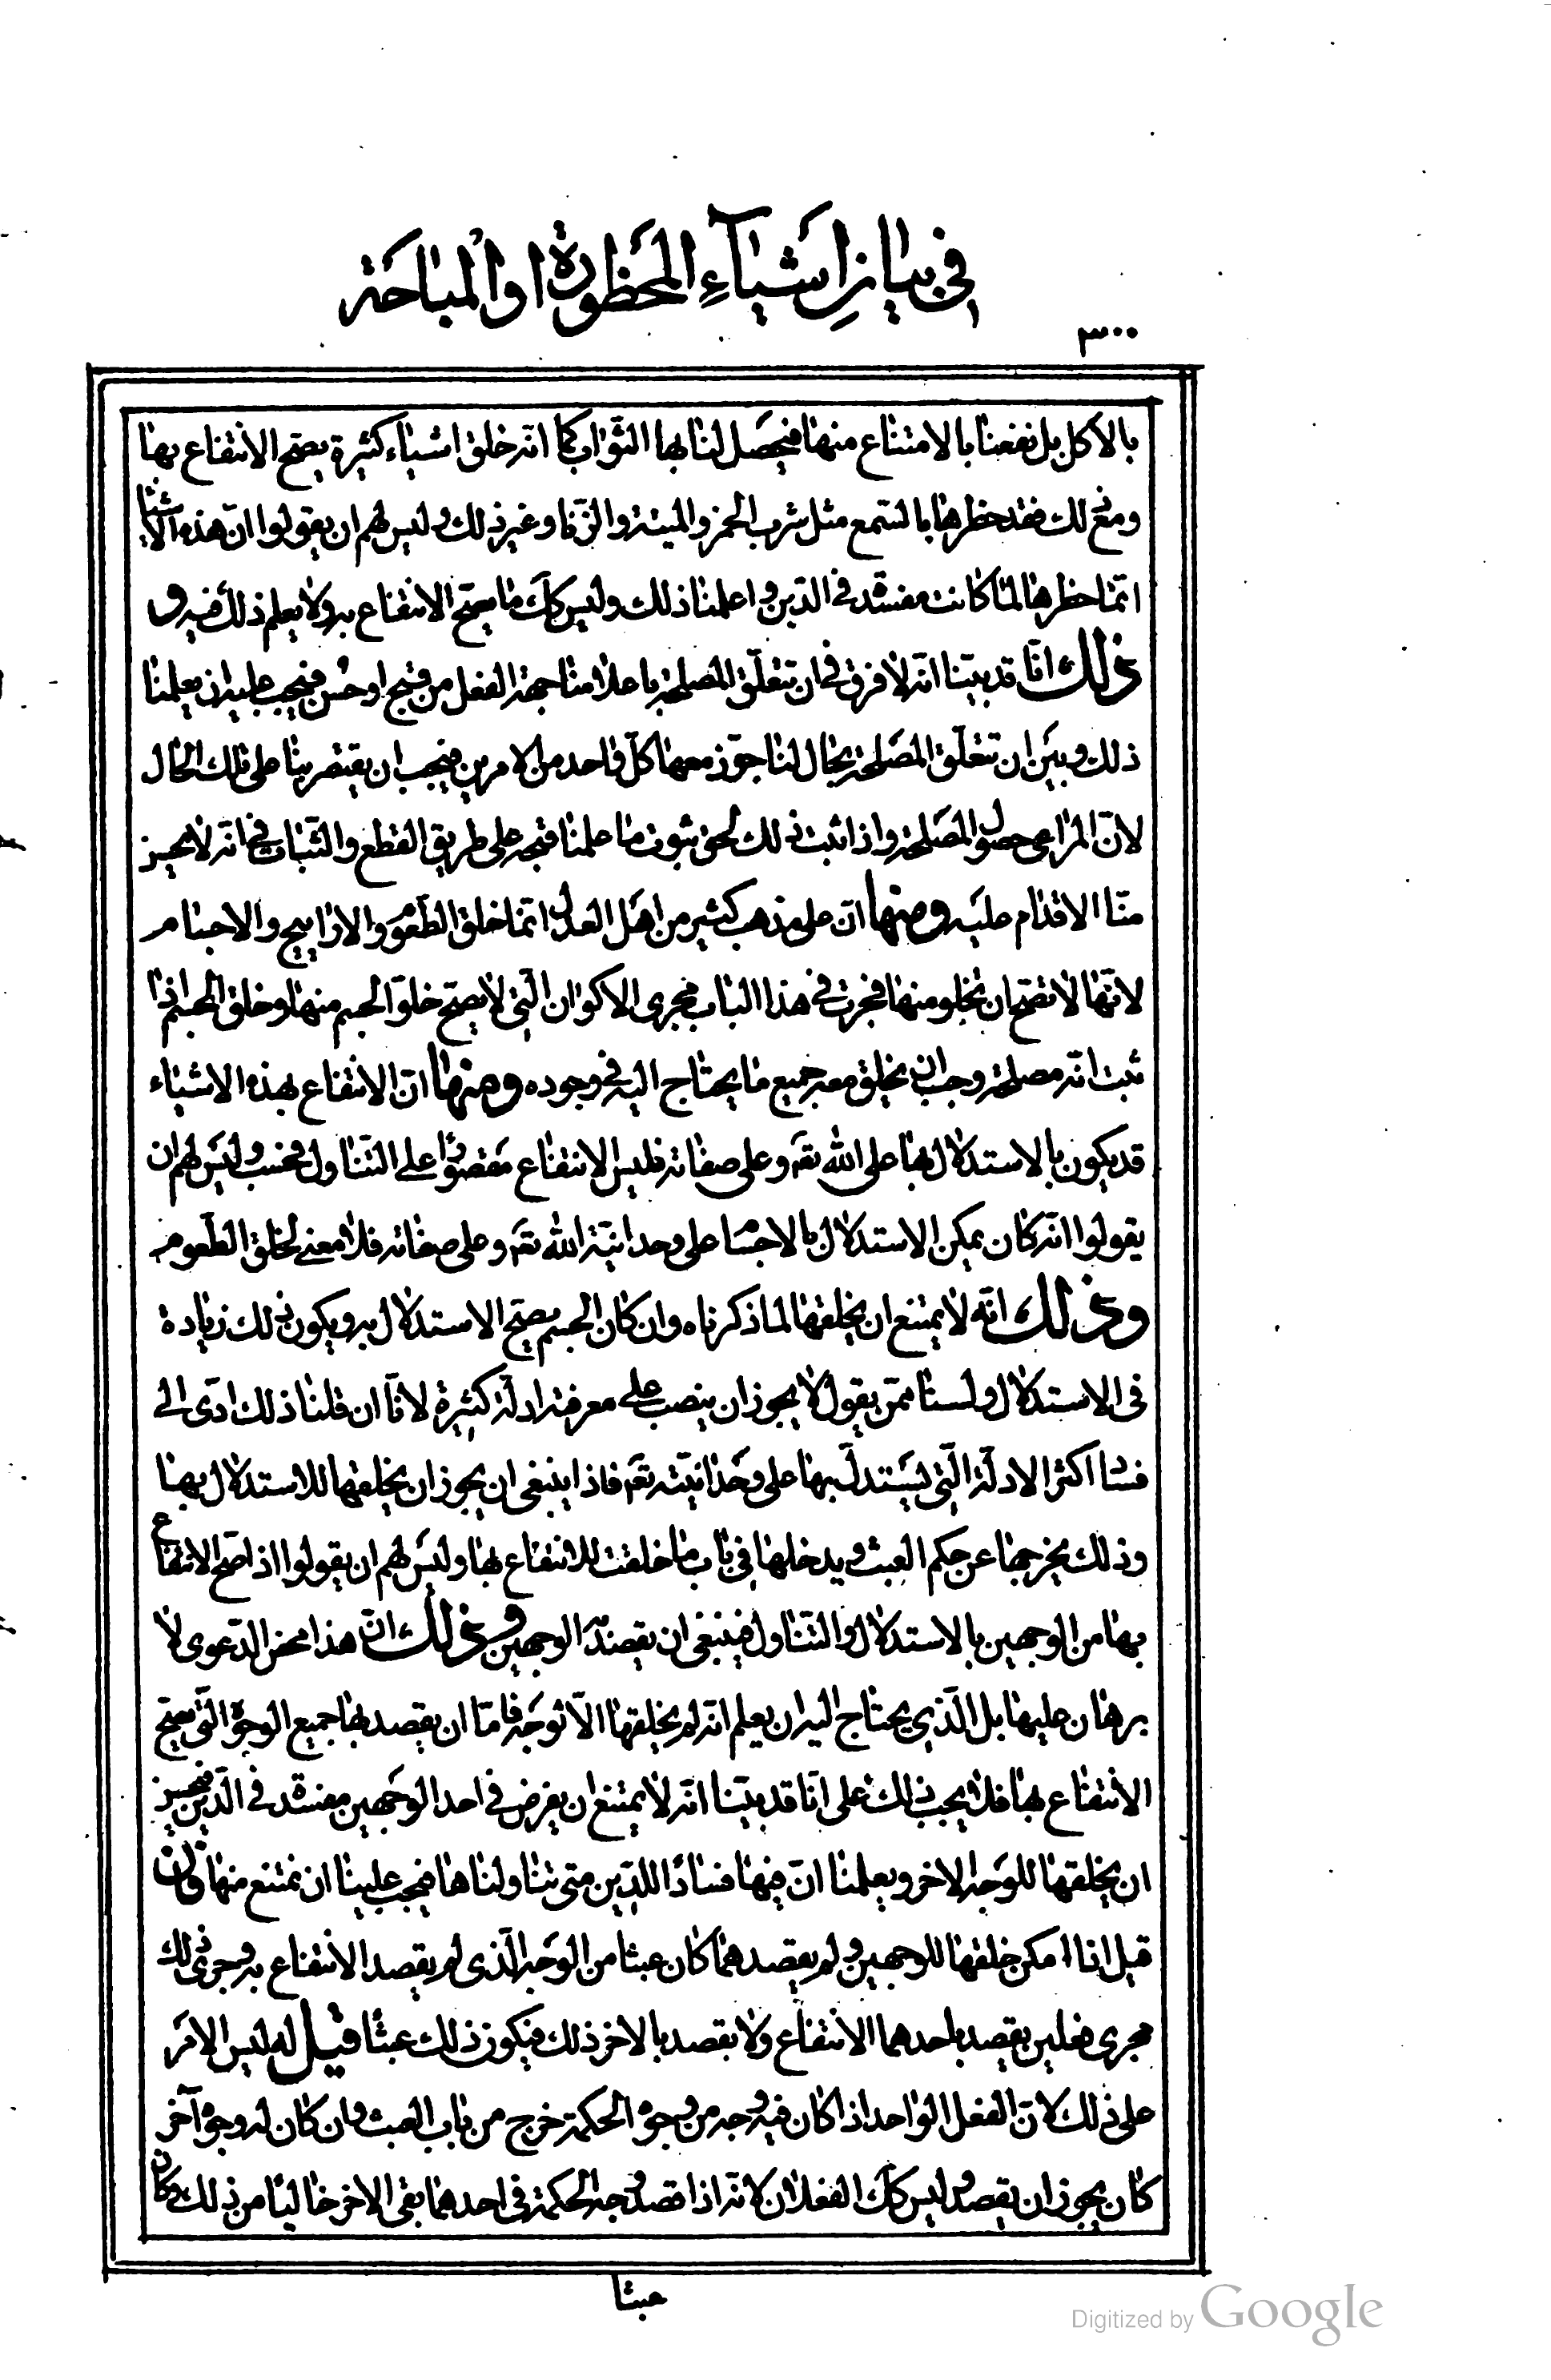 في بيان اشيآءِ المحظورة او المباحة
٣٠٠
بالاكل بل نفعنا بالامتناع منها فيحصل لنا بها الثواب كما انه خلق اشياء كثيرة يصح الانتفاع بها
ومع ذلك فقد حظرها بالسمع مثل شرب الخمر والميتة والزنا وغير ذلك وليس لهم ان يقولوا ان هذه الاشيا
انما حظرها لما كانت مفسدة في الدين واعلمنا ذلك وليس كك ما يصح الانتفاع به ولا يعلم ذلك فيه و
ذلك انا قد بينا انه لا فرق في ان تتعلق المصلحة باعلامنا جهة الفعل من قبح او حسن فيجب عليه ان يعلمنا
ذلك وبين ان تتعلق المصلحة بحال لنا جوز معها كل واحد من الامرين فيجب ان يقتصر بنا على تلك الحال
لان المراعى حصول المصلحة واذا ثبت ذلك لحق ثبوت ما علمنا قبحه على طريق القطع والثبات في انه لا يحسن
منا الاقدام عليه ومنها ان على مذهب كثير من اهل العدل انما خلق الطعوم والاراييح والاجسام
لانها لا تصح ان تخلو منها فجرت في هذا الباب مجرى الاكوان التي لا يصح خلو الجسم منها وخلق الجسم اذا
ثبت انه مصلحة وجب ان يخلق معه جميع ما يحتاج اليه في وجوده ومنها ان الانتفاع بهذه الاشياء
قد يكون بالاستدلال بها على الله تعَ وعلى صفاته فليس الانتفاع مقصورًا على التناول فحسب وليس لهم ان
يقولوا انه كان يمكن الاستدلال بالاجسا على وحدانية الله تعَ وعلى صفاته فلا معنى لخلق الطعوم
وذلك انه لا يمتنع ان يخلقها لما ذكرناه وان كان الجسم يصح الاستدلال به ويكون ذلك زيادة
في الاستدلال ولسنا ممن يقول لا يجوز ان ينصب على معرفته ادلة كثيرة لانا ان قلنا ذلك ادى الى
فساد اكثر الادلة التي يستدل بها على وحدانيته تعَ فاذا ينبغي ان يجوز ان يخلقها للاستدلال بها
وذلك يخرجها عن حكم العبث ويدخلها في باب ما خلقت للانتفاع بها وليس لهم ان يقولوا اذا صح الانتفاع
بها من الوجهين بالاستدلال والتناول فينبغي ان يقصد الوجهين وذلك ان هذا محض الدعوى لا
برهان عليها بل الذي يحتاج اليه ان يعلم انه لم يخلقها الا لوجه فاما ان يقصد بها جميع الوجوه التي يصح
الانتفاع بها فلا يجب ذلك على انا قد بينا انه لا يمتنع ان يفرض في احد الوجهين مفسدة في الدين فيحسن
ان يخلقها للوجه الاخر ويعلمنا ان فيها فسادًا للدين متى تناولناها فيجب علينا ان نمتنع منها فان
قيل اذا امكن خلقها للوجهين ولم يقصدهما كان عبثا من الوجه الذي لم يقصد الانتفاع به وجرى ذلك
مجرى فعلين يقصد باحدهما الانتفاع ولا يقصد بالاخر ذلك فيكون ذلك عبثًا قيل له ليس الامر
على ذلك لان الفعل الواحد اذا كان فيه وجه من وجوه الحكمة خرج من باب العبث وان كان له وجوه آخر
كان يجوز ان يقصد وليس كك الفعلان لانه اذا قصد وجه الحكمة في احدهما بقى الاخر خاليًا من ذلك وكان
عبثا
Digitized by Google